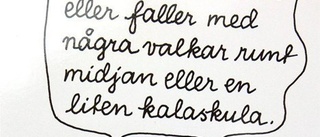 eller faller med
några valkar runt
midjan eller en
liten kalaskula.